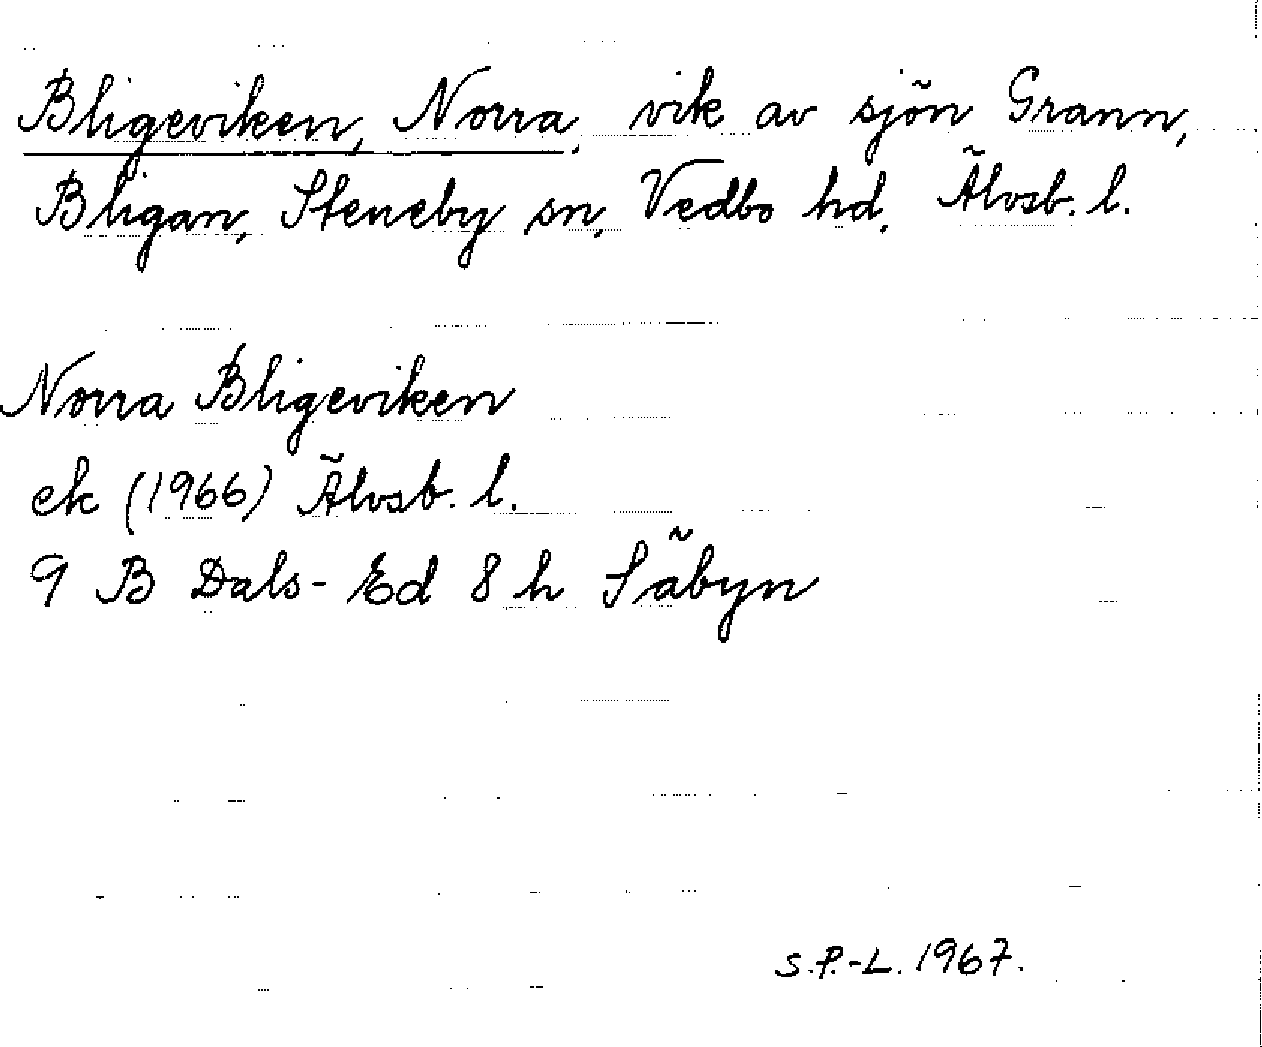 Bligeviken, Norra, vik av sjön Grann,
Bligan, Steneby sn, Vedbo hd, Älvsb. l.
Norra Bligeviken
ek (1966) Älvsb. l.
9 B Dals-Ed 8 h Säbyn
S.P.-L. 1967.